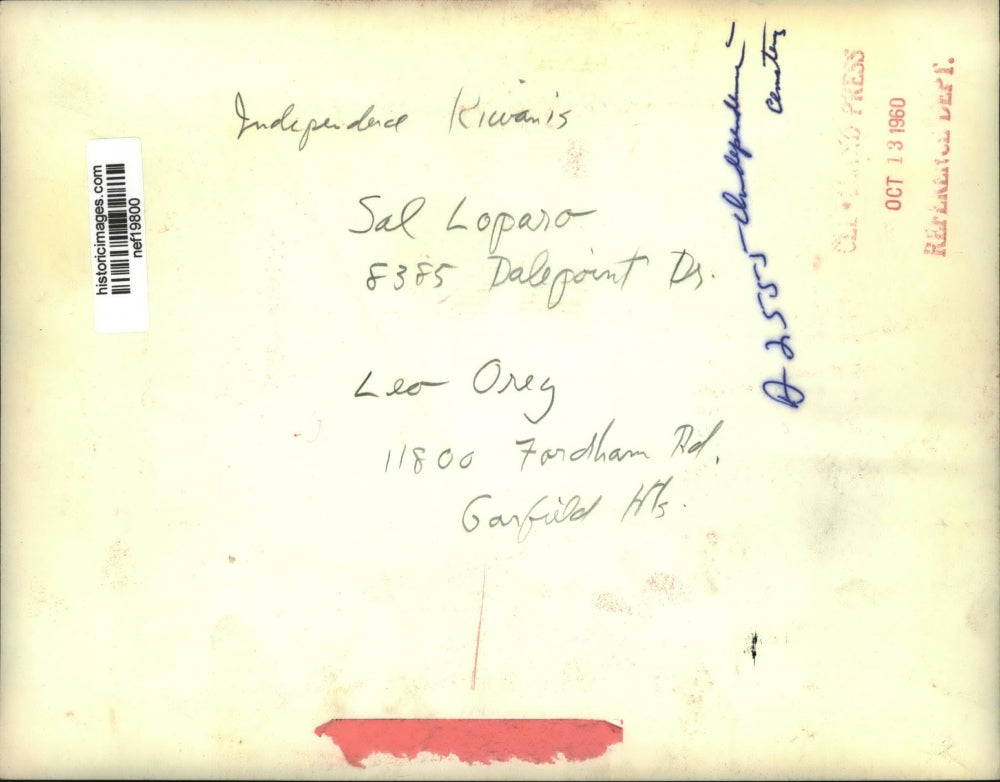 Independence Kiwanis
Sal Loparo
8385 Dalepoint Dr.
Leo Oreg
11800 Fordham Rd.
Garfield Hts.
historicimages.com
nef19800
A-2555-Independence-
Cemetery
CLEVELAND PRESS
OCT 13 1960
REFERENCE DEPT.